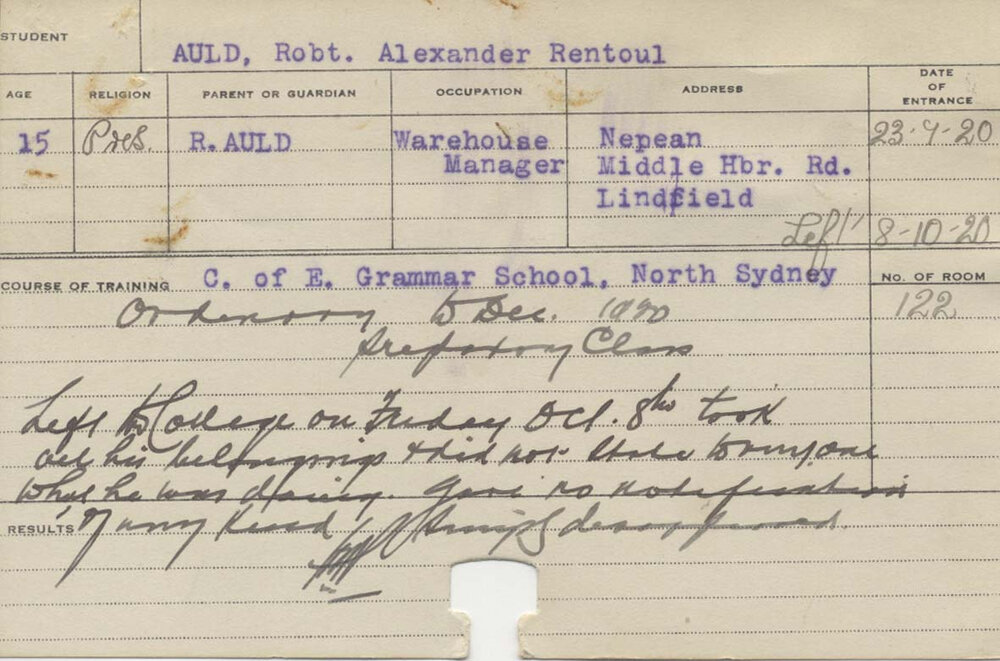 STUDENT
AULD, Robt. Alexander Rentoul
AGE RELIGION PARENT OR GUARDIAN OCCUPATION ADDRESS DATE OF ENTRANCE
15 Pres. R. AULD Warehouse Nepean 23-9-20
Manager Middle Hbr. Rd.
Lindfield
Left 8-10-20
COURSE OF TRAINING C. of E. Grammar School, North Sydney No. OF ROOM
Ordinary to Dec. 1920 122
Preparatory Class
Left the College on Friday Oct. 8th took
all his belongings & did not state to anyone
what he was doing. Gave no notification
RESULTS of any kind, simply disappeared.